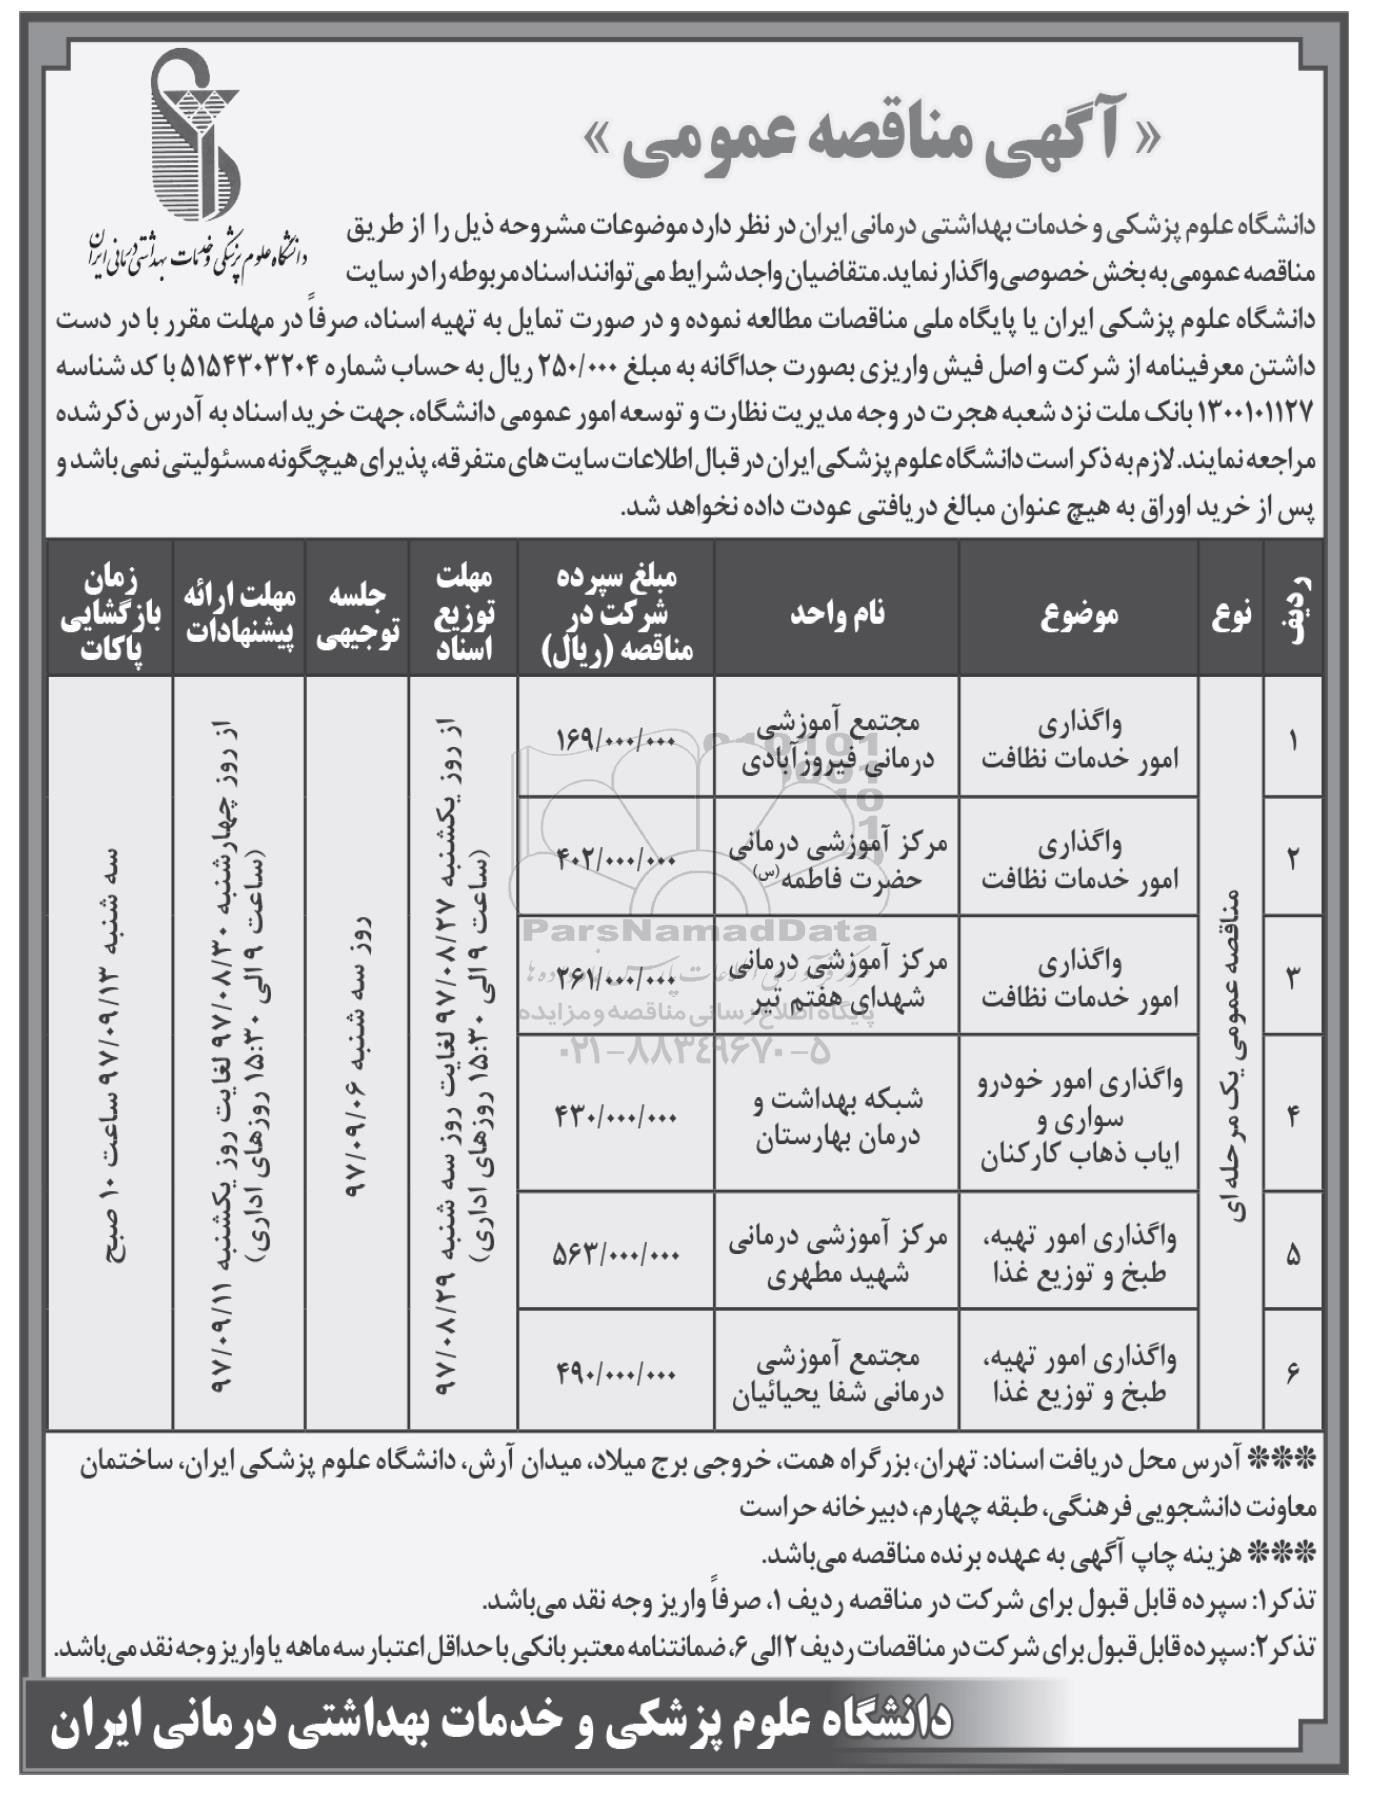 « آگهی مناقصه عمومی »
دانشگاه علوم پزشکی و خدمات بهداشتی درمانی ایران
دانشگاه علوم پزشکی و خدمات بهداشتی درمانی ایران در نظر دارد موضوعات مشروحه ذیل را از طریق
مناقصه عمومی به بخش خصوصی واگذار نماید. متقاضیان واجد شرایط می توانند اسناد مربوطه را در سایت
دانشگاه علوم پزشکی ایران یا پایگاه ملی مناقصات مطالعه نموده و در صورت تمایل به تهیه اسناد، صرفاً در مهلت مقرر با در دست
داشتن معرفینامه از شرکت و اصل فیش واریزی بصورت جداگانه به مبلغ ۲۵۰/۰۰۰ ریال به حساب شماره ۵۱۵۴۳۰۳۲۰۴ با کد شناسه
۱۳۰۰۱۰۱۱۲۷ بانک ملت نزد شعبه هجرت در وجه مدیریت نظارت و توسعه امور عمومی دانشگاه، جهت خرید اسناد به آدرس ذکر شده
مراجعه نمایند. لازم به ذکر است دانشگاه علوم پزشکی ایران در قبال اطلاعات سایت های متفرقه، پذیرای هیچگونه مسئولیتی نمی باشد و
پس از خرید اوراق به هیچ عنوان مبالغ دریافتی عودت داده نخواهد شد.
ردیف
نوع
موضوع
نام واحد
مبلغ سپرده
شرکت در
مناقصه (ریال)
مهلت
توزیع
اسناد
جلسه
توجیهی
مهلت ارائه
پیشنهادات
زمان
بازگشایی
پاکات
۱
مناقصه عمومی یک مرحله ای
واگذاری
امور خدمات نظافت
مجتمع آموزشی
درمانی فیروزآبادی
۱۶۹/۰۰۰/۰۰۰
از روز یکشنبه ۹۷/۰۸/۲۷ لغایت روز سه شنبه ۹۷/۰۸/۲۹
(ساعت ۹ الی ۱۵:۳۰ روزهای اداری)
روز سه شنبه ۹۷/۰۹/۰۶
از روز چهارشنبه ۹۷/۰۸/۳۰ لغایت روز یکشنبه ۹۷/۰۹/۱۱
(ساعت ۹ الی ۱۵:۳۰ روزهای اداری)
سه شنبه ۹۷/۰۹/۱۳ ساعت ۱۰ صبح
۲
واگذاری
امور خدمات نظافت
مرکز آموزشی درمانی
حضرت فاطمه(س)
۴۰۲/۰۰۰/۰۰۰
۳
واگذاری
امور خدمات نظافت
مرکز آموزشی درمانی
شهدای هفتم تیر
۲۶۱/۰۰۰/۰۰۰
۴
واگذاری امور خودرو
سواری و
ایاب ذهاب کارکنان
شبکه بهداشت و
درمان بهارستان
۴۳۰/۰۰۰/۰۰۰
۵
واگذاری امور تهیه،
طبخ و توزیع غذا
مرکز آموزشی درمانی
شهید مطهری
۵۶۳/۰۰۰/۰۰۰
۶
واگذاری امور تهیه،
طبخ و توزیع غذا
مجتمع آموزشی
درمانی شفا یحیائیان
۴۹۰/۰۰۰/۰۰۰
ParsNamadData
پایگاه اطلاع رسانی مناقصه و مزایده
۰۲۱-۸۸۳۴۹۶۷۰-۵
*** آدرس محل دریافت اسناد: تهران، بزرگراه همت، خروجی برج میلاد، میدان آرش، دانشگاه علوم پزشکی ایران، ساختمان
معاونت دانشجویی فرهنگی، طبقه چهارم، دبیرخانه حراست
*** هزینه چاپ آگهی به عهده برنده مناقصه می‌باشد.
تذکر۱: سپرده قابل قبول برای شرکت در مناقصه ردیف ۱، صرفاً واریز وجه نقد می‌باشد.
تذکر۲: سپرده قابل قبول برای شرکت در مناقصات ردیف ۲ الی ۶، ضمانتنامه معتبر بانکی با حداقل اعتبار سه ماهه یا واریز وجه نقد می‌باشد.
دانشگاه علوم پزشکی و خدمات بهداشتی درمانی ایران